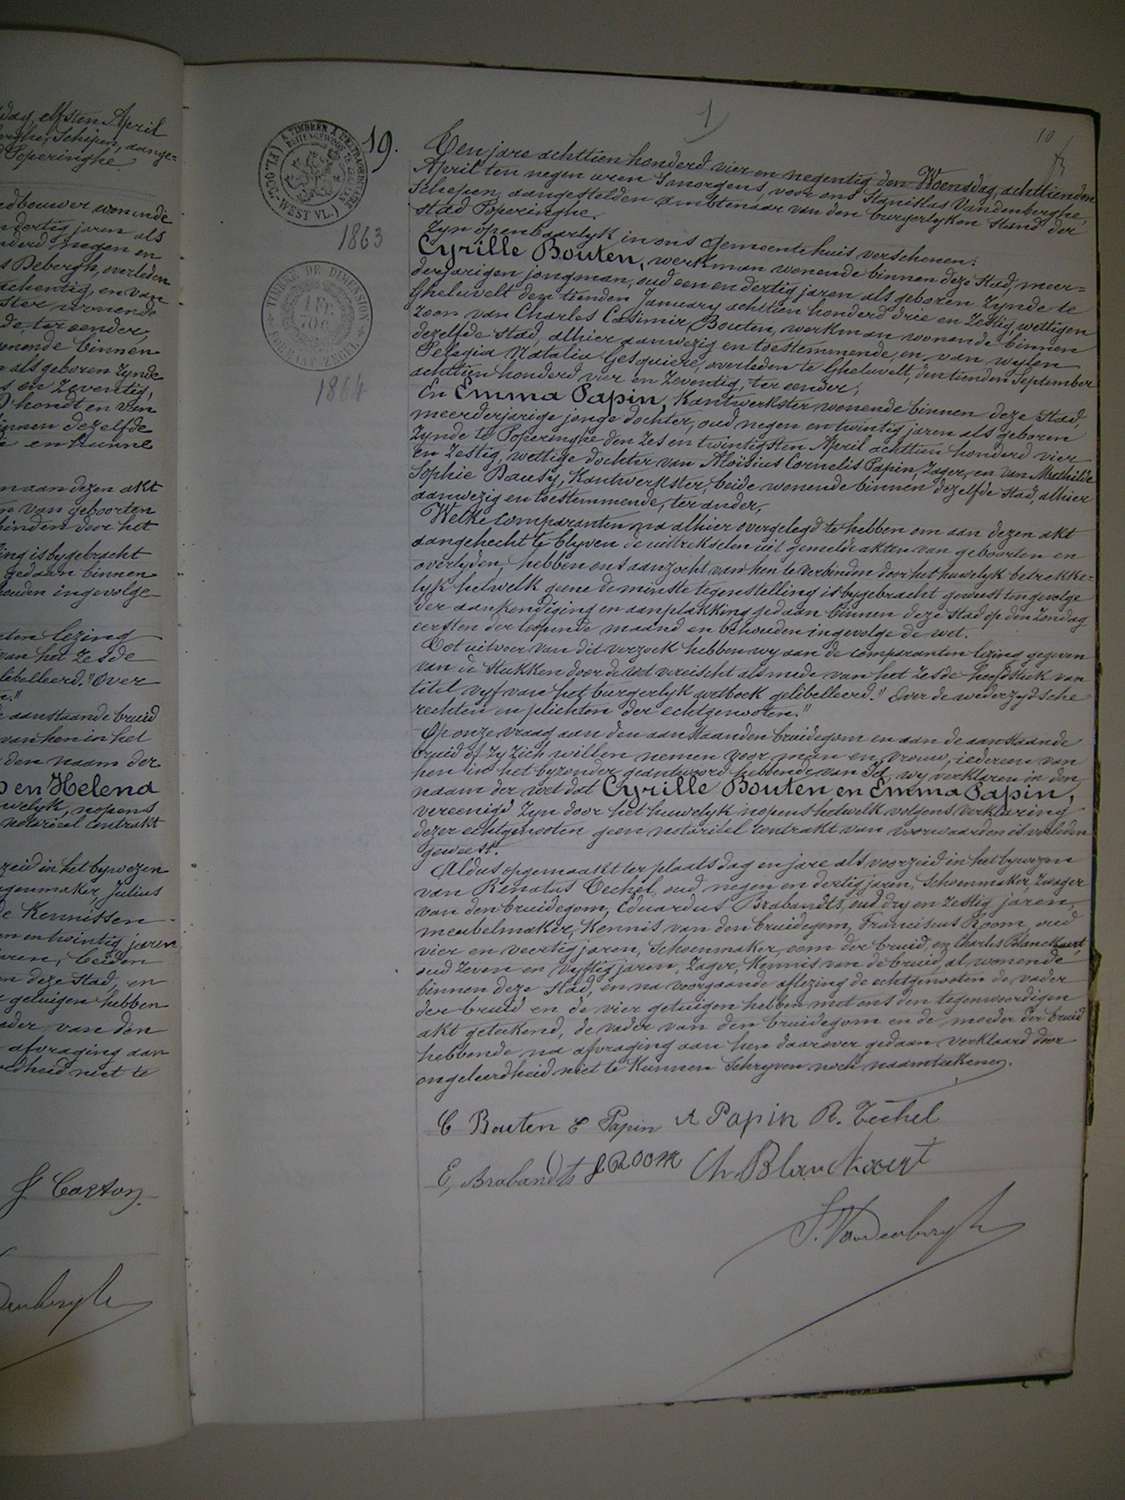 dag elfsten April
Schepen, aange-
Poperinghe
landbouwer wonende
dertig jaren als
honderd negen en
Debergh, overleden
tachentig, en van
wonende
de, ter eender,
wonende binnen
als geboren zynde
en zeventig,
D'hondt en van
binnen dezelfde
en kunne
aan dezen akt
van geboorten
binden door het
is bygebracht
gedaan binnen
ingevolge
lezing
van het zesde
gelibelleerd. "Over
aanstaande bruid
van hen in het
den naam der
en Helena
huwelyk, nopens
notarieel contrakt
voorzeid in het bywezen
Julius
Kennissen
en twintig jaren
beiden
deze stad, en
getuigen hebben
vader van den
afvraging aan
ongeleerdheid niet te
J Caston
Vandenberghe
1
10
A. TIMBRER A L'EXTRAORDINAIRE
(FL. OCC.-WEST VL.)
1863
TIMBRE DE DIMENSION
FORMAAT ZEGEL
1864
19.
Ten jare achttien honderd vier en negentig den Woensdag achttienden
April ten negen uren 's morgens, voor ons Stanislas Vandenberghe,
Schepen, aangestelden ambtenaar van den burgerlyken stand der
stad Poperinghe.
Zyn openbaarlyk in ons Gemeentehuis verschenen:
Cyrille Bouten, werkman wonende binnen deze stad, meer=
derjarigen jongman, oud een en dertig jaren als geboren zynde te
Gheluvelt den tienden January achttien honderd drie en zestig, wettigen
zoon van Charles Casimir Bouten, werkman wonende binnen
dezelfde stad, alhier aanwezig en toestemmende, en van wylen
Pelagia Natalia Gesquiere, overleden te Gheluvelt, den tienden September
achttien honderd vier en zeventig, ter eender;
En Emma Papin, Kantwerkster wonende binnen deze stad,
meerderjarige jonge dochter, oud negen en twintig jaren als geboren
zynde te Poperinghe den zes en twintigsten April achttien honderd vier
en zestig, wettige dochter van Aloïsius Cornelis Papin, Zager, en van Mathilde
Sophie Bausy, Kantwerkster, beide wonende binnen dezelfde stad, alhier
aanwezig en toestemmende, ter ander,
Welke comparanten na alhier overgelegd te hebben om aan dezen akt
aangehecht te blyven de uittrekselen uit gemelde akten van geboorten en
overlyden, hebben ons aanzocht van hen te verbinden door het huwelyk betrekke=
lyk hetwelk geene de minste tegenstelling is bygebracht geweest ingevolge
der aankondiging en aanplakking gedaan binnen deze stad op den zondag
eersten der loopende maand en behouden ingevolge de wet.
Tot uitvoer van dit verzoek hebben wy aan de comparanten lezing gegeven
van de stukken door de wet vereischt als mede van het zesde hoofdstuk van
titel vyf van het burgerlyk wetboek gelibelleerd: "Over de wederzydsche
rechten en plichten der echtgenooten."
Op onze vraag aan den aanstaanden bruidegom en aan de aanstaande
bruid of zy zich willen nemen voor man en vrouw, iedereen van
hen in het byzonder geantwoord hebbende van Ja, wy verklaren in den
naam der wet dat Cyrille Bouten en Emma Papin,
vereenigd zyn door het huwelyk nopens hetwelk volgens verklaring
dezer echtgenooten geen notarieel contrakt van voorwaarden is verleden
geweest.
Aldus opgemaakt ter plaats dag en jare als voorzeid in het bywezen
van Renatus Techel, oud negen en dertig jaren, Schoenmaker, Zwager
van den bruidegom, Eduardus Brabandts, oud dry en zestig jaren,
meubelmaker, Kennis van den bruidegom, Franciskus Room, oud
vier en veertig jaren, Schoenmaker, oom der bruid, en Charles Blanckaert,
oud zeven en vyftig jaren, Zager, Kennis van de bruid, al wonende
binnen deze stad, en na voorgaande aflezing de echtgenooten de vader
der bruid en de vier getuigen hebben met ons den tegenwoordigen
akt geteekend, de vader van den bruidegom en de moeder der bruid
hebbende na afvraging aan hen daarover gedaan verklaard door
ongeleerdheid niet te kunnen schryven noch naamteekenen.
C Bouten E Papin A Papin R. Techel
E, Brabandts F ROOM Ch. Blanckaert
S. Vandenberghe